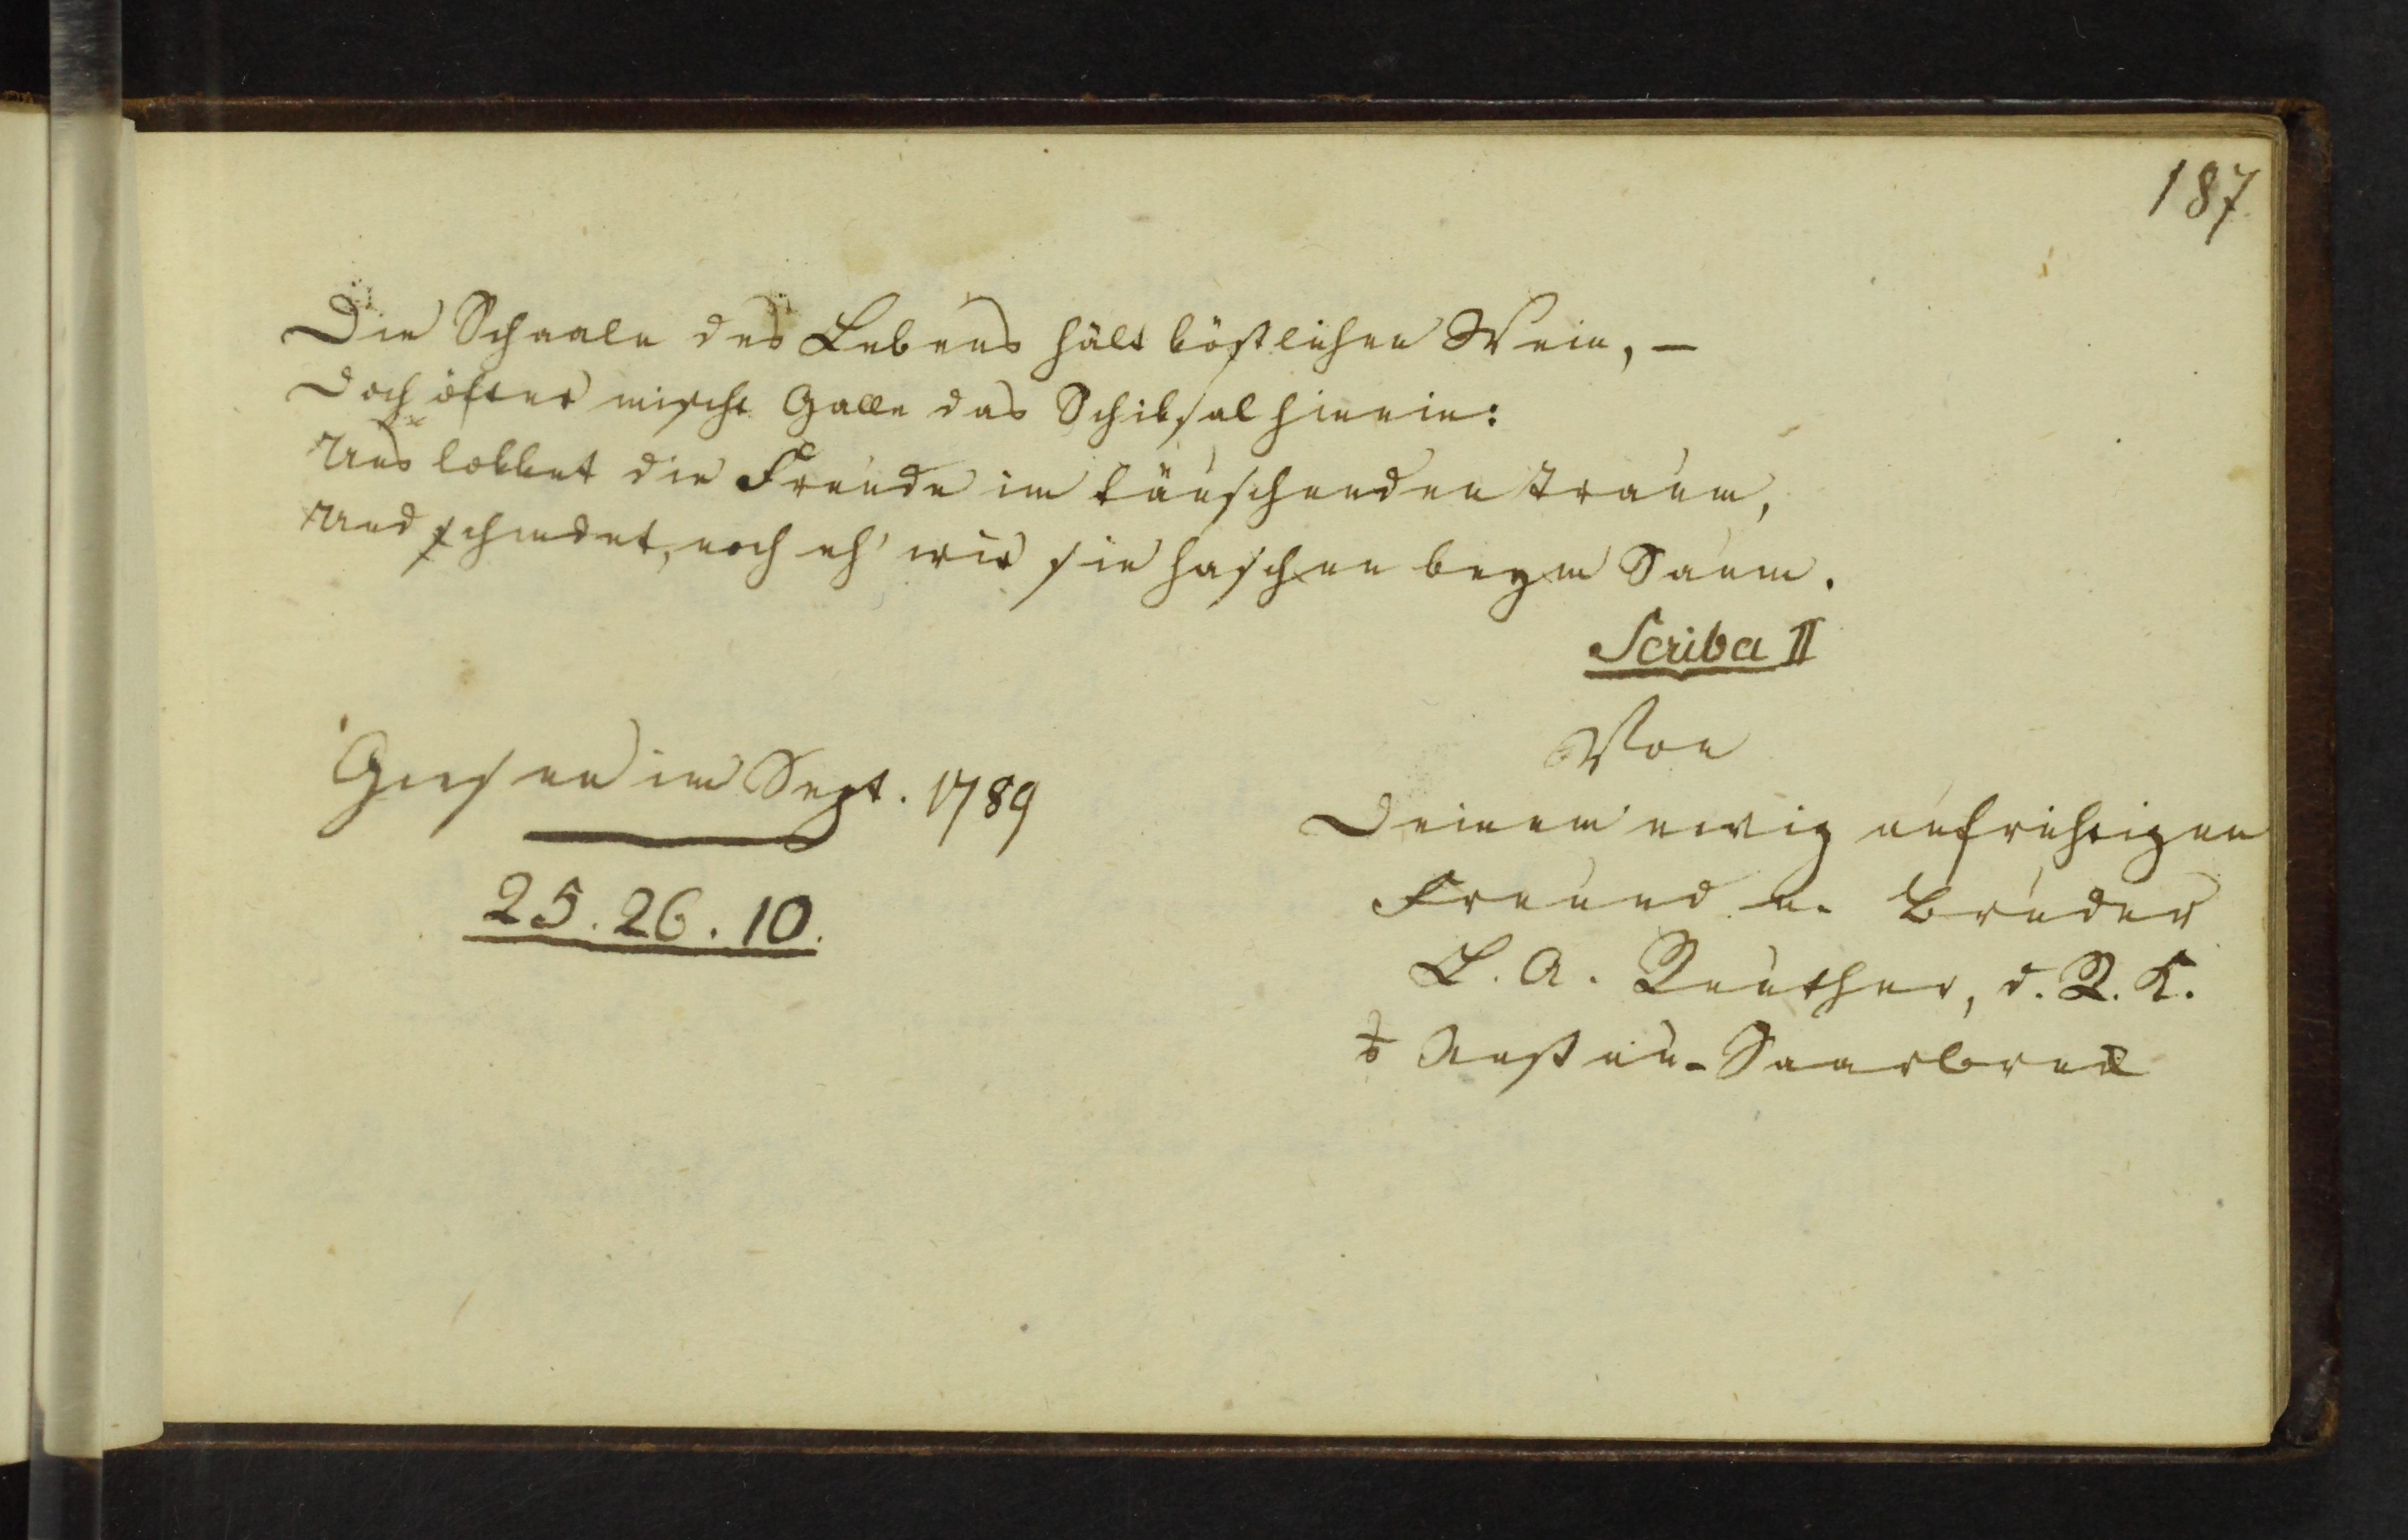 187
Die Schaale des Lebens hält köstlichen Wein, –
Doch öfter mischt Galle das Schiksal hinein:
Uns lokket die Freude im täuschenden Traum,
Und schwindet, noch eh' wir sie haschen beym Saum.
Scriba II
Giesen im Sept. 1789
25. 26. 10.
Von
Deinem ewig aufrichtigen
Freund u. Bruder
L. A. Reuther, d. R. K.
Naßau-Saarbrück